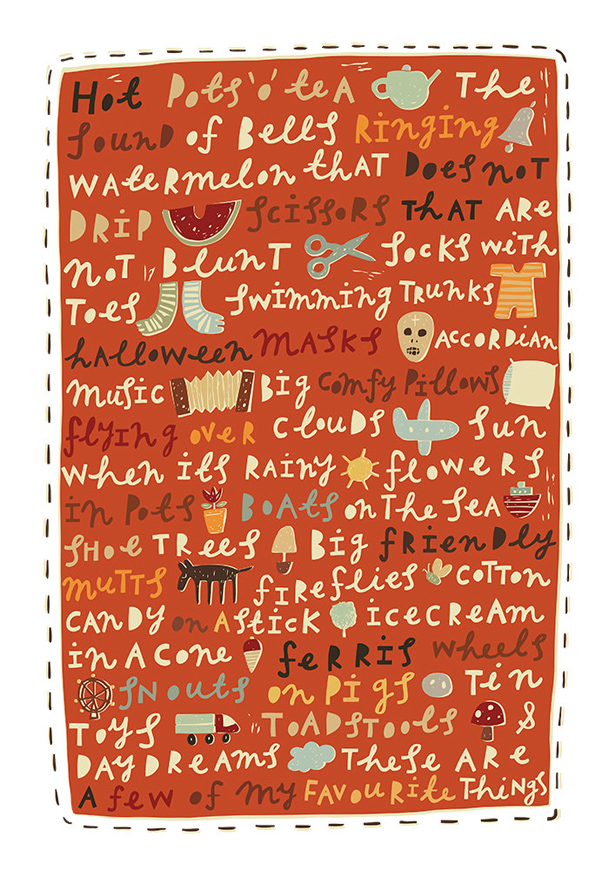 Hot Pots 'o' teA The
sound of Bells Ringing
wAteRmelon thAT Does noT
DRiP scissoRs thAT ARe
noT BlunT socks wiTh
Toes swimming TRunks
hAlloween MAsks AccoRDiAn
music Big comfy Pillows
flying oveR clouDs sun
when iTs RAiny floweRs
in PoTs BoATs on The seA
sHoe TRees Big fRienDly
muTTs fiReflies coTTon
cAnDy on A stick icecReAm
in A cone feRRis wheels
snouts on Pigs Tin
Toys ToADsTools &
DAyDReAms These ARe
A few of my fAvouRite Things